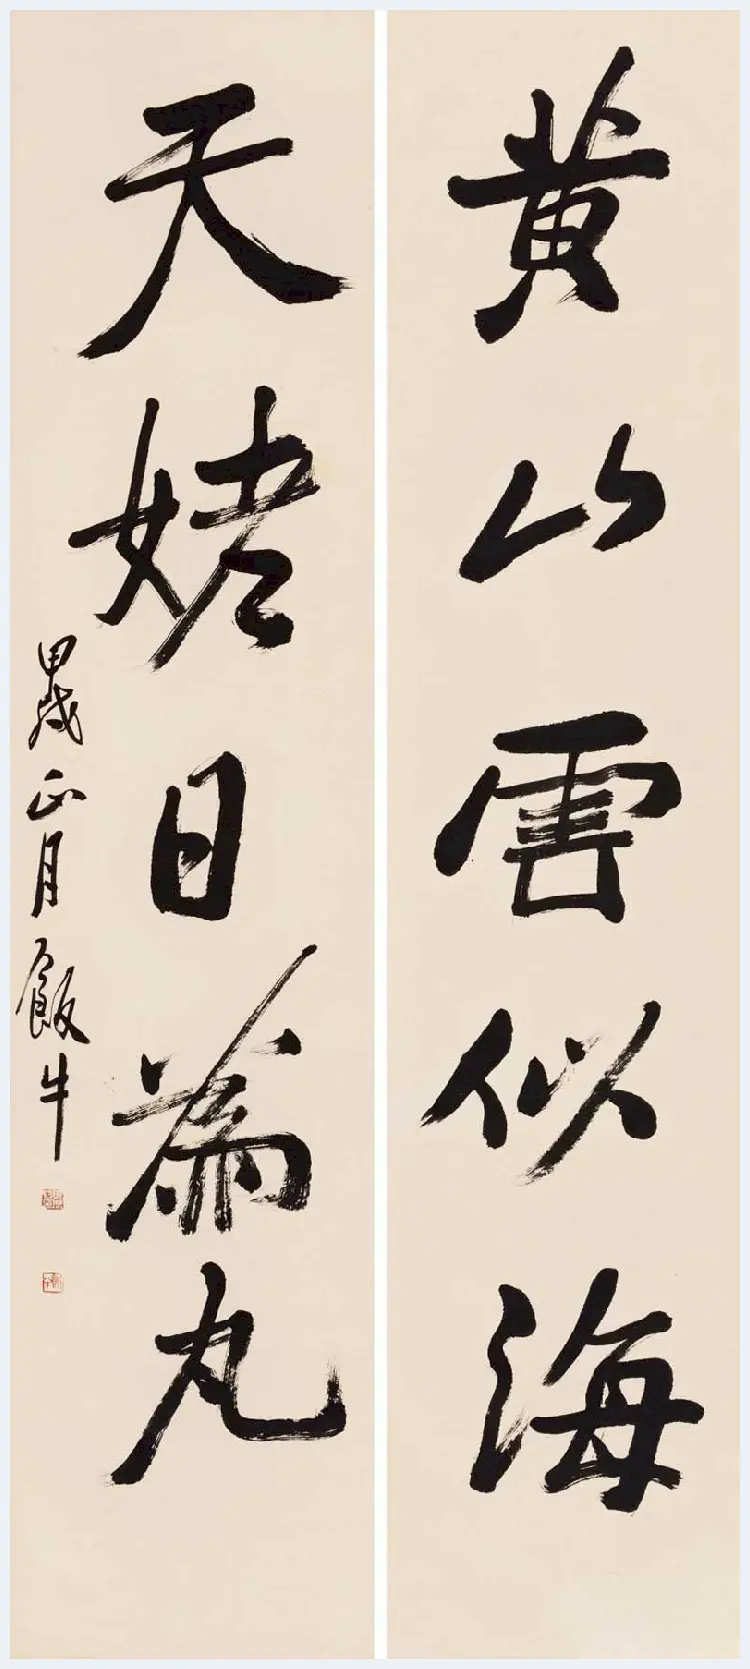 黄山雲似海
天姥日丸
甲戌正月飯牛